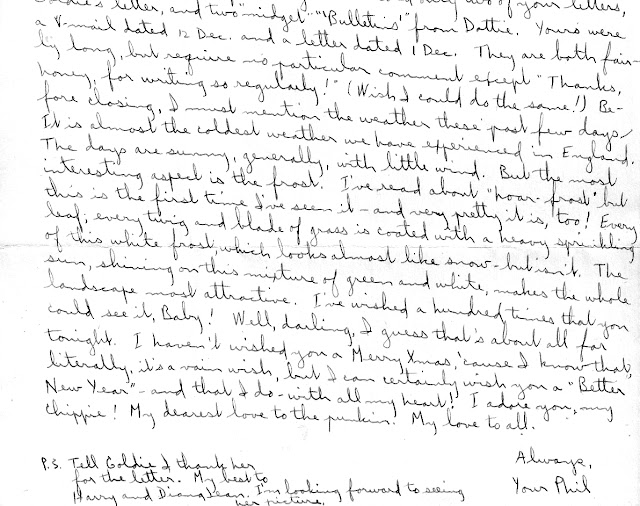 Goldie's letter, and two "midget" "'Bulletins'" from Dottie. Yours were
a V-mail dated 12 Dec. and a letter dated 1 Dec. They are both fair-
ly long, but require no particular comment except "Thanks,
honey, for writing so regularly!" (Wish I could do the same!) Be-
fore closing, I must mention the weather these past few days.
It is almost the coldest weather we have experienced in England.
The days are sunny, generally, with little wind. But the most
interesting aspect is the frost. I've read about "hoar-frost" but
this is the first time I've seen it - and very pretty it is, too! Every
leaf, every twig and blade of grass is coated with a heavy sprinkling
of this white frost which looks almost like snow - but isn't. The
sun, shining on this mixture of green and white, makes the whole
landscape most attractive. I've wished a hundred times that you
could see it, Baby! Well, darling, I guess that's about all for
tonight. I haven't wished you a Merry Xmas, 'cause I know that,
literally, it's a vain wish, but I can certainly wish you a "Better
New Year" - and that I do - with all my heart! I adore you, my
Chippie! My dearest love to the punkin. My love to all.
Always,
Your Phil
P.S. Tell Goldie I thank her
for the letter. My best to
Harry and Diana Jean. I'm looking forward to seeing
her picture.